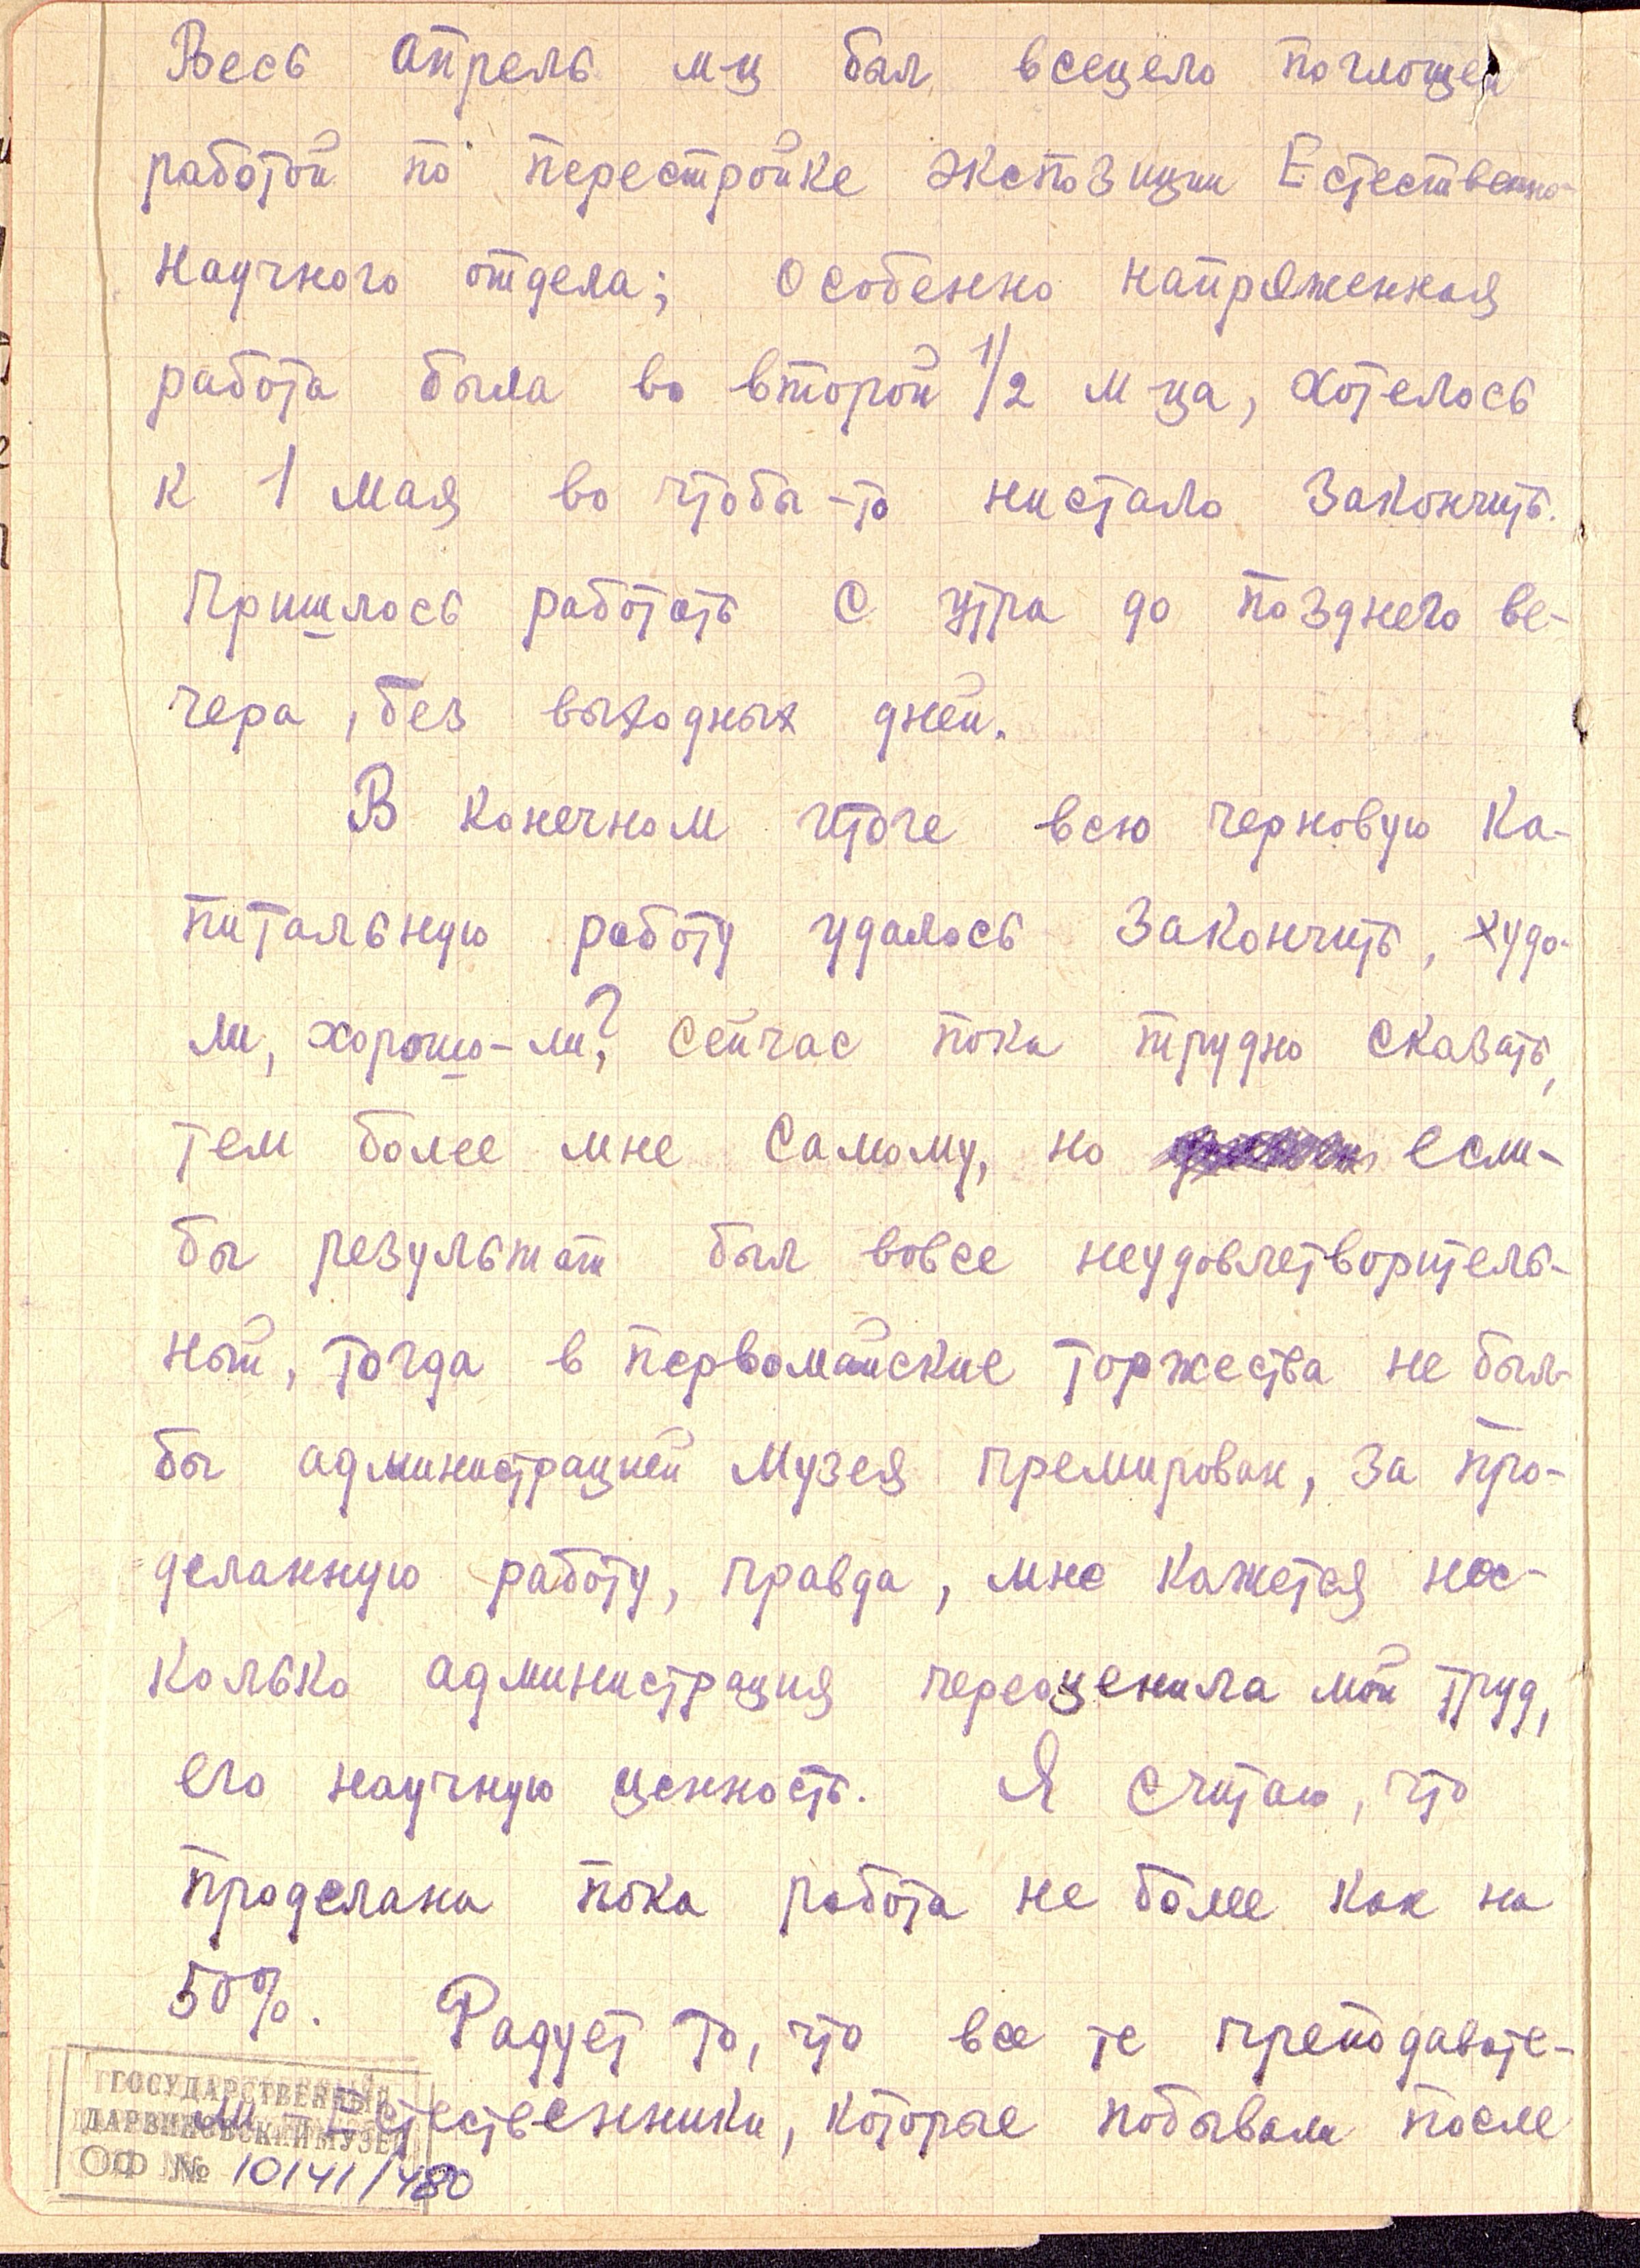 Весь апрель м-ц был всецело поглощен
работой по перестройке экспозиции Естественно-
Научного отдела; Особенно напряженная
работа была во второй 1/2 м-ца, хотелось
к 1 мая во чтобы-то нистало закончить.
Пришлось работать с утра до позднего ве-
чера, без выходных дней.
В конечном итоге всю черновую ка-
питальную работу удалось закончить, худо-
ли, хорошо-ли? сейчас пока трудно сказать,
тем более мне самому, но если-
бы результат был вовсе неудовлетворитель-
ный, тогда в первомайские торжества не был-
бы администрацией Музея премирован, за про-
деланную работу, правда, мне кажется нес-
колько администрация переоценила мой труд,
его научную ценность. Я считаю, что
проделана пока работа не более как на
50%. Радует то, что все те преподавате-
ли - Естественники, которые побывали после
ГОСУДАРСТВЕННЫЙ
ДАРВИНОВСКИЙ МУЗЕЙ
ОФ № 10141/480